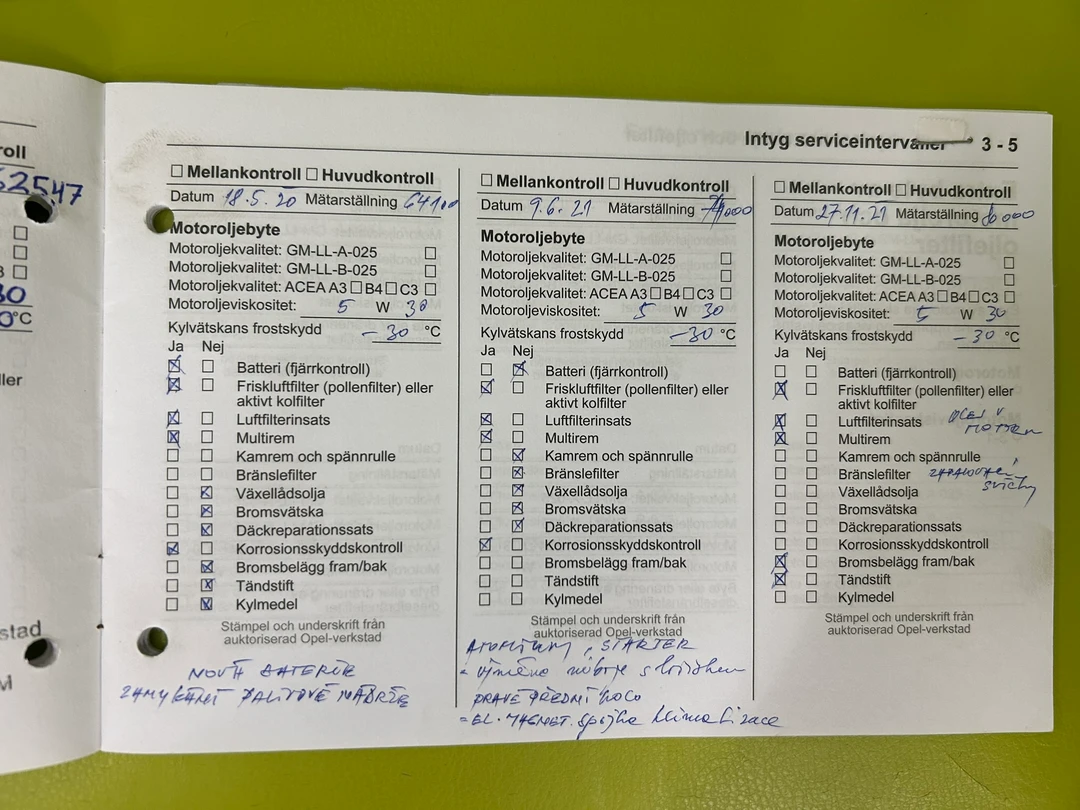 Intyg serviceintervaller 3 - 5
roll
52547
30
0°C
ller
stad
M
☐ Mellankontroll ☐ Huvudkontroll
Datum 18.5.20 Mätarställning
Motoroljebyte
Motoroljekvalitet: GM-LL-A-025 ☐
Motoroljekvalitet: GM-LL-B-025 ☐
Motoroljekvalitet: ACEA A3 ☐ B4 ☐ C3 ☐
Motoroljeviskositet: 5 W 30
Kylvätskans frostskydd -30 °C
Ja Nej
☒ ☐ Batteri (fjärrkontroll)
☒ ☐ Friskluftfilter (pollenfilter) eller
aktivt kolfilter
☒ ☐ Luftfilterinsats
☒ ☐ Multirem
☐ ☐ Kamrem och spännrulle
☐ ☐ Bränslefilter
☐ ☒ Växellådsolja
☐ ☒ Bromsvätska
☐ ☒ Däckreparationssats
☒ ☐ Korrosionsskyddskontroll
☐ ☒ Bromsbelägg fram/bak
☐ ☒ Tändstift
☐ ☒ Kylmedel
Stämpel och underskrift från
auktoriserad Opel-verkstad
NOVÁ BATERIE
ZAMYKÁNÍ PALIVOVÉ NÁDRŽE
☐ Mellankontroll ☐ Huvudkontroll
Datum 9.6.21 Mätarställning
Motoroljebyte
Motoroljekvalitet: GM-LL-A-025 ☐
Motoroljekvalitet: GM-LL-B-025 ☐
Motoroljekvalitet: ACEA A3 ☐ B4 ☐ C3 ☐
Motoroljeviskositet: 5 W 30
Kylvätskans frostskydd -30 °C
Ja Nej
☐ ☒ Batteri (fjärrkontroll)
☒ ☐ Friskluftfilter (pollenfilter) eller
aktivt kolfilter
☒ ☐ Luftfilterinsats
☒ ☐ Multirem
☐ ☒ Kamrem och spännrulle
☐ ☒ Bränslefilter
☐ ☒ Växellådsolja
☐ ☒ Bromsvätska
☐ ☒ Däckreparationssats
☒ ☐ Korrosionsskyddskontroll
☐ ☐ Bromsbelägg fram/bak
☐ ☐ Tändstift
☐ ☐ Kylmedel
Stämpel och underskrift från
auktoriserad Opel-verkstad
, STARTER
- výměna náboje s ložiskem
PRAVÉ PŘEDNÍ KOLO
= EL. MAGNET. spojka klimatizace
☐ Mellankontroll ☐ Huvudkontroll
Datum 27.11.21 Mätarställning
Motoroljebyte
Motoroljekvalitet: GM-LL-A-025 ☐
Motoroljekvalitet: GM-LL-B-025 ☐
Motoroljekvalitet: ACEA A3 ☐ B4 ☐ C3 ☐
Motoroljeviskositet: 5 W 30
Kylvätskans frostskydd -30 °C
Ja Nej
☐ ☐ Batteri (fjärrkontroll)
☒ ☐ Friskluftfilter (pollenfilter) eller
aktivt kolfilter
☒ ☐ Luftfilterinsats OLEJ V
☒ ☐ Multirem MOTORU
☐ ☐ Kamrem och spännrulle
☐ ☐ Bränslefilter ZAPALOVACÍ
☐ ☐ Växellådsolja svíčky
☐ ☐ Bromsvätska
☐ ☐ Däckreparationssats
☐ ☐ Korrosionsskyddskontroll
☒ ☐ Bromsbelägg fram/bak
☒ ☐ Tändstift
☐ ☐ Kylmedel
Stämpel och underskrift från
auktoriserad Opel-verkstad